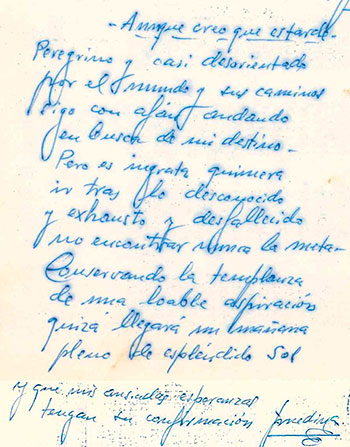 - Aunque creo que es tarde -
Peregrino y casi desorientado
por el mundo y sus caminos
sigo con afán andando
en busca de mi destino -
Pero es ingrata quimera
ir tras lo desconocido
y exhausto y desfallecido
no encontrar nunca la meta -
Conservando la templanza
de una loable aspiración
quizá llegará un mañana
pleno de espléndido Sol
y que mis ansiadas esperanzas
tengan su confirmación